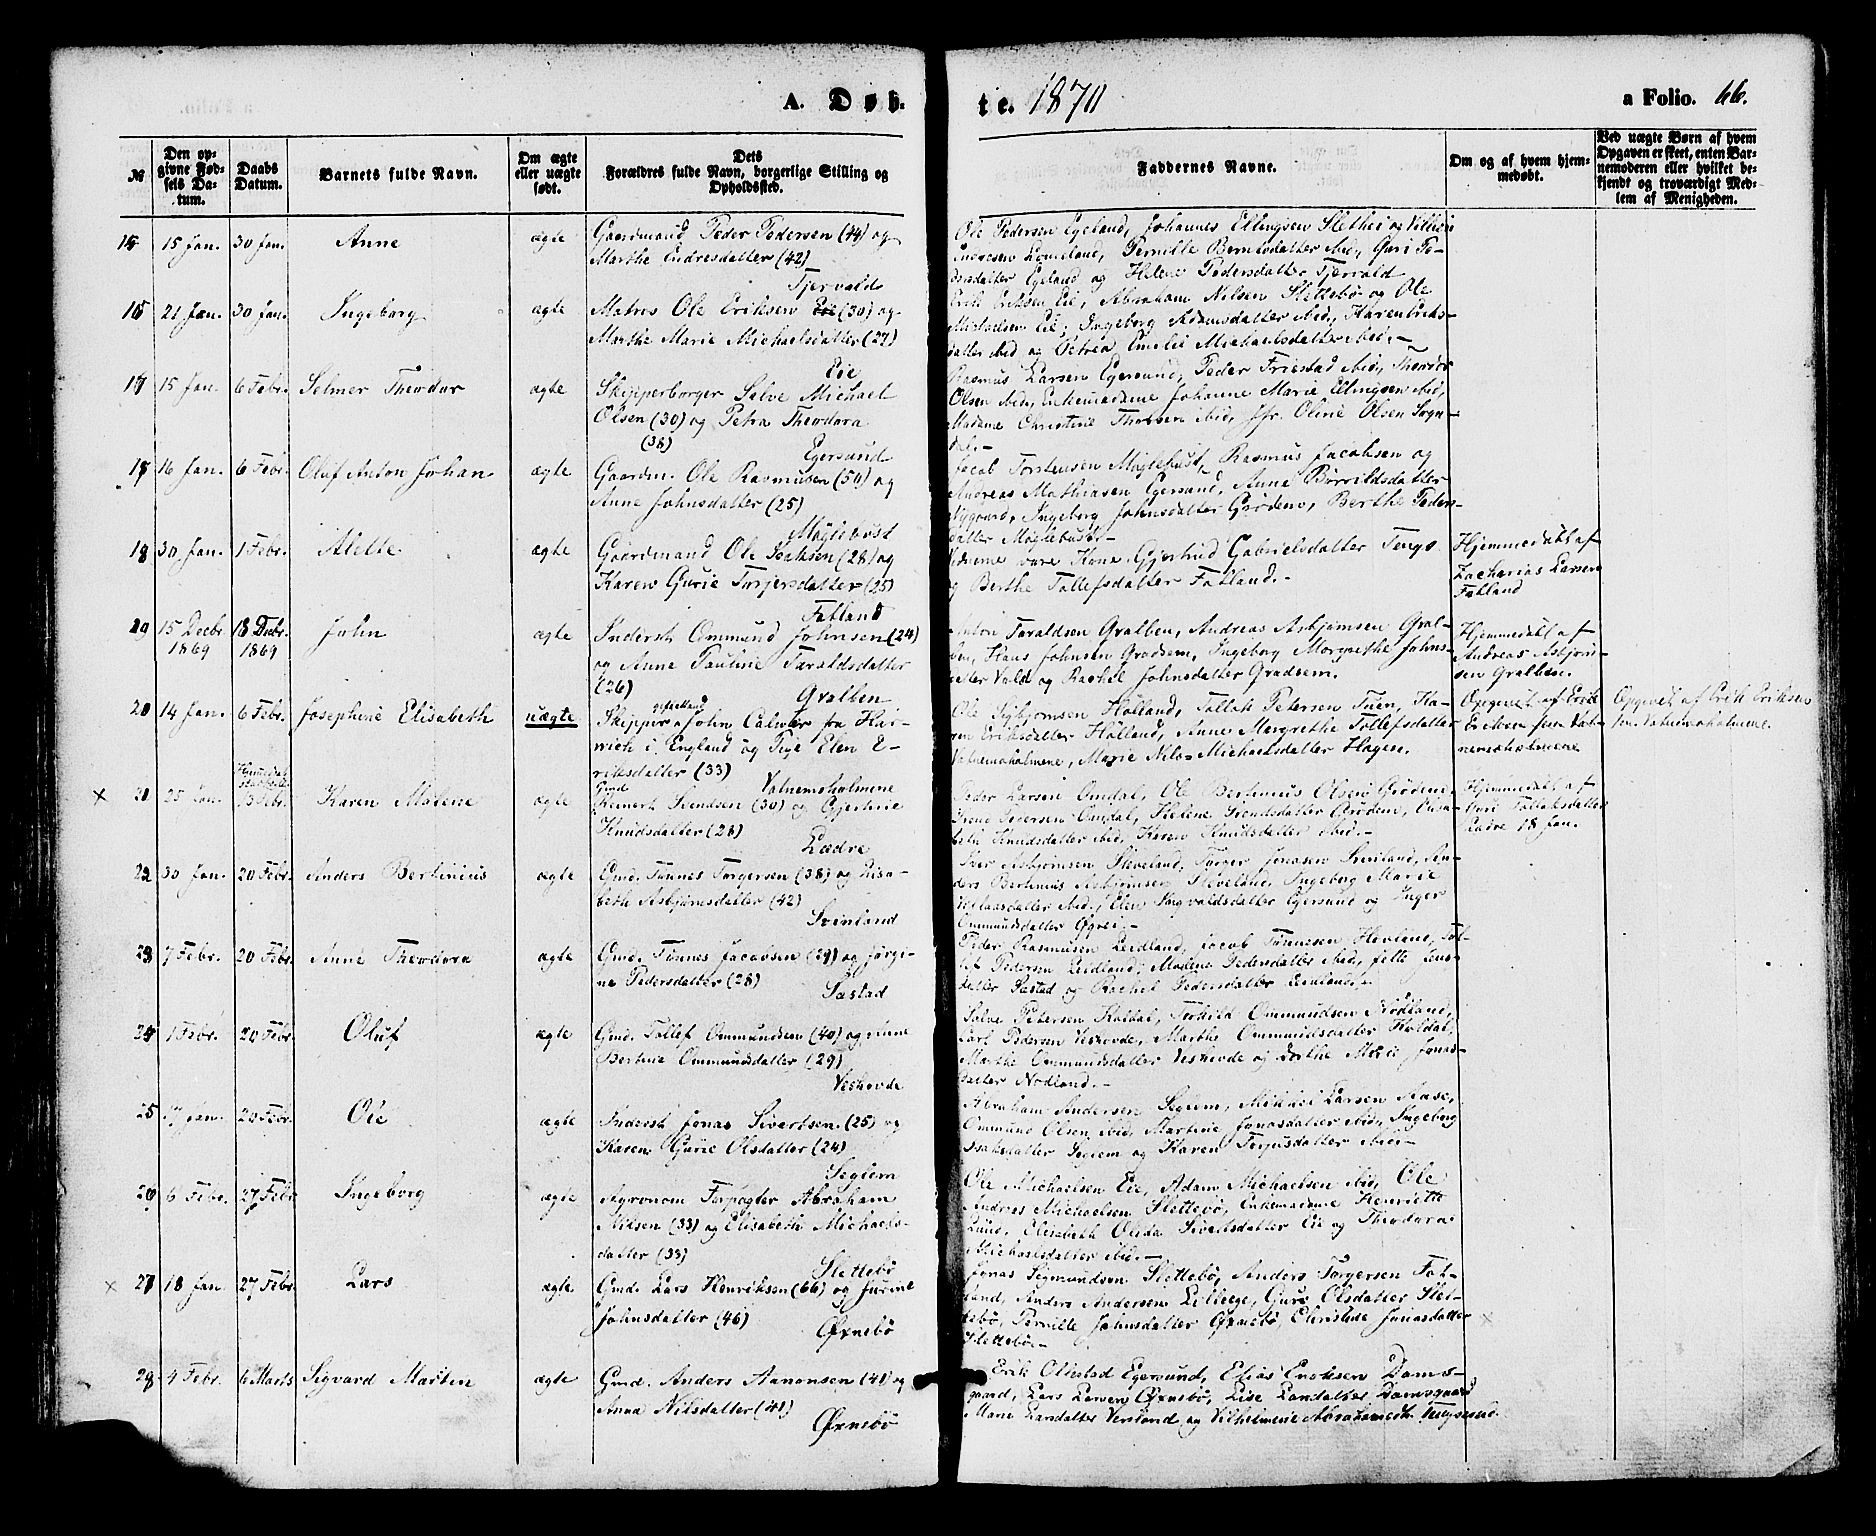 A. Døb-
te. 1870
a Folio. 66.
№
Den op-
givne Fød-
sels Da-
tum.
Daabs
Datum.
Barnets fulde Navn.
Om ægte
eller uægte
født.
Dets
Forældres fulde Navn, borgerlige Stilling og
Opholdssted.
Faddernes Navne.
Om og af hvem hjem-
medøbt.
Ved uægte Børn af hvem
Opgaven er skeet, enten Bar-
nemoderen eller hvilket be-
kjendt og troværdigt Med-
lem af Menigheden.
15 Jan. 30 Jan. Anne ægte
Gaardmand Peder Pedersen (44) og
Marthe Endresdatter (42)
Tjervald
Ole Pedersen Egeland, Johannes Ellingsen Slethei og
Lomeland, Pernille Berntsdatter ibid., Guri Pe-
dersdatter Egeland og Helene Pedersdatter Tjervald
21 Jan. 30 Jan. Ingeborg ægte
Matros Ole Eriksen (30) og
Marthe Marie Michaelsdatter (27)
Eie
Erik Eriksen Eie, Abraham Nilsen Slettebø og Ole
Michaelsen Eie, Ingeborg Adamsdatter ibid., Karen Eriks-
datter ibid og Petrea Emelie Michaelsdatter ibid.-
15 Jan. 6 Febr. Selmer Theodor ægte
Skipperborger Salve Michael
Olsen (30) og Petra Theodora
(38)
Egersund
Rasmus Larsen Egersund, Peder Friestad ibid, Theodor
Olsen ibid, Enkemadame Johanne Marie Ellingsen ibid,
Madame Christine Thorsen ibid, Jfr. Oline Olsen Sogn-
dal.-
16 Jan. 6 Febr. Oluf Anton Johan ægte
Gaardm. Ole Rasmusen (50) og
Anne Johnsdatter (25)
Møglebust
Jacob Torstensen Møglebust, Rasmus Jacobsen og
Andreas Mathiasen Egersund, Anne
Nygaard, Ingeborg Johnsdatter Grødem, Berthe Peders-
datter Møglebust.-
18 30 Jan. 1 Febr. Alette ægte
Gaardmand Ole Isaksen (28) og
Karen Gurie Torjersdatter (25)
Fotland
Fadderne vare Kone Gjertrud Gabrielsdatter Tengs
og Berthe Tollefsdatter Fotland.-
Hjemmedøbt af
Zacharias Larsen
Fotland
15 Decbr.
1869
18 Decbr.
1869
John ægte
Inderst Ommund Johnsen (24)
og Anne Pauline Taraldsdatter
(26)
Gralben
Taraldsen Gralben, Andreas Asbjørnsen Gral-
ben, Hans Johnsen Grødem, Ingeborg Margrethe Johns-
datter Vold og Rachel Johnsdatter Grødem.
Hjemmedøbt af
Andreas Asbjørn-
sen Gralben.
20 14 Jan. 6 Febr. Josephine Elisabeth uægte
Skipper John Calver fra Har-
wich i England og Pige Elen E-
riksdatter (33)
Vatnemsholmene
Ole Sigbjørnsen Hølland, Tollak Petersen Tuen, Ka-
ren Eriksdatter Hølland, Anne Margrethe Tollefsdatter
Vatnemsholmene, Marie Michaelsdatter Hagen.
Opgivet af Erik
Eriksen sen. Vat-
nemsholmene
Opgivet af Erik Eriksen
sen. Vatnemsholmene.
× 21 25 Jan. 13 Febr. Karen Malene ægte
Gmd
Reinert Svendsen (30) og
Knudsdatter (28)
Lædre
Peder Larsen Omdal, Ole Bertinius Olsen Grødem
Pedersen Omdal, Helene Svendsdatter Grødem,
Knudsdatter ibid, Karen Knudsdatter ibid.-
Hjemmedøbt af
Guri Tollaksdatter
Lædre 18 Jan.
22 30 Jan. 20 Febr. Anders Bertinius ægte
Gmd. Tønnes Torgersen (38) og Lisa-
beth Asbjørnsdatter (42)
Svinland
Iver Asbjørnsen Sleveland, Torger Jonasen Svinland, An-
ders Bertinius Asbjørnsen Sleveland, Ingeborg Marie
ibid., Elen Ingvaldsdatter Egersund og Inger
Ommundsdatter
23 7 Febr. 20 Febr. Anne Theodora ægte
Gmd. Tønnes Jacobsen (29) og Jørgi-
ne Pedersdatter (28)
Sæstad
Peder Rasmusen Leidland, Jacob Tønnesen Tol-
lef Pedersen Leidland, Malene Pedersdatter ibid,
datter Sæstad og Rachel Pedersdatter Leidland.-
24 1 Febr. 20 Febr. Oluf ægte
Gmd. Tollef Ommundsen (40) og Anne
Bertine Ommundsdatter (29)
Veshovde
Salve Petersen Koldal, Torkild Ommundsen Nodland,
Carl Pedersen Veshovde, Marthe Ommundsdatter Koldal,
Marthe Ommundsdatter Veshovde og Marie Jonas-
datter Nodland.-
25 17 Jan. 20 Febr. Ole ægte
Inderst Jonas Sivertsen (25) og
Karen Gurie Olsdatter (24)
Seglem
Abraham Andersen Seglem, Mikkel Larsen Aase,
Ommund Olsen ibid, Martine Jonasdatter ibid, Ingeborg
Isaksdatter Seglem og Karen Torjusdatter ibid.-
26 6 Febr. 27 Febr. Ingeborg ægte
Agronom Forpagter Abraham
Nilsen (33) og Elisabeth Michaels-
datter (33)
Slettebø
Ole Michaelsen Eie, Adam Michaelsen ibid, Ole
Andreas Michaelsen Slettebø, Enkemadame Henriette
Lund, Elisabeth Olida Sivertsdatter Eie og Theodora
Michaelsdatter ibid.-
× 27 18 Jan. 27 Febr. Lars ægte
Gmd. Lars Henriksen (66) og Jurine
Johnsdatter (46)
Øxnebø
Jonas Sigmundsen Slettebø, Anders Torgersen Fot-
land, Anders Andersen Lilleeie, Guro Olsdatter Slet-
tebø, Pernille Johnsdatter Øxnebø, Christine Jonasdatter
Slettebø.-
28 4 Febr. 6 Marts Sigvard Martin ægte
Gmd. Anders Aanonsen (41) og
Anna Nilsdatter (41)
Øxnebø
Erik Ollestad Egersund, Elias Enoksen Dams-
gaard, Lars Larsen Øxnebø, Lise Larsdatter Damsgaard
Marie Larsdatter og Vilhelmine Abrahamsdtr.